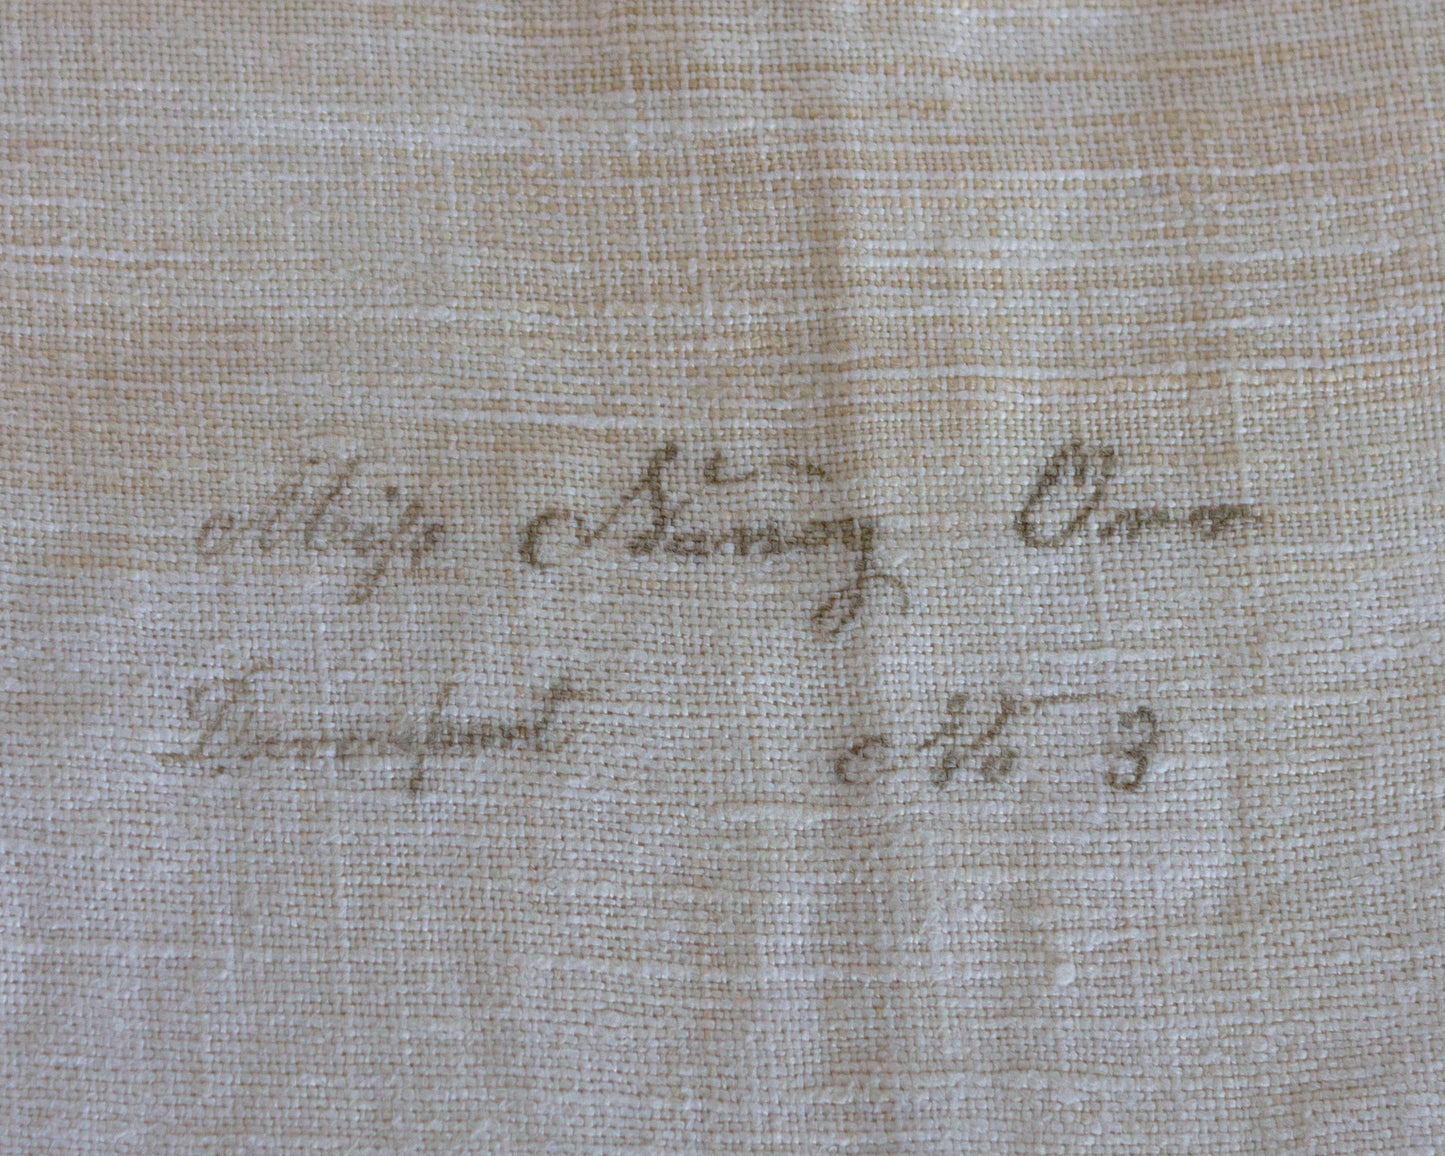 Miſs Nancy Ann
Davenport No 3